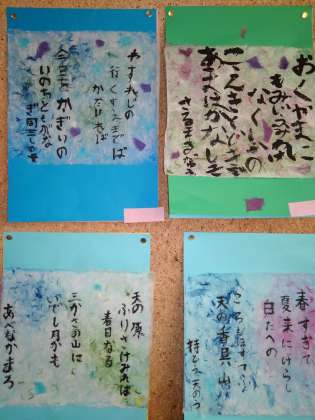 おくやまに
もみじふみわけ
なくしかの
こえきくときぞ
あきはかなしき
わすれじの
行くすえまでは
かたければ
今日をかぎりの
いのちともがな
春すぎて
夏来にけらし
白たへの
ころもほすてふ
天の香具山
天の原
ふりさけみれば
春日なる
三かさの山に
いでし月かも
あべなかまろ